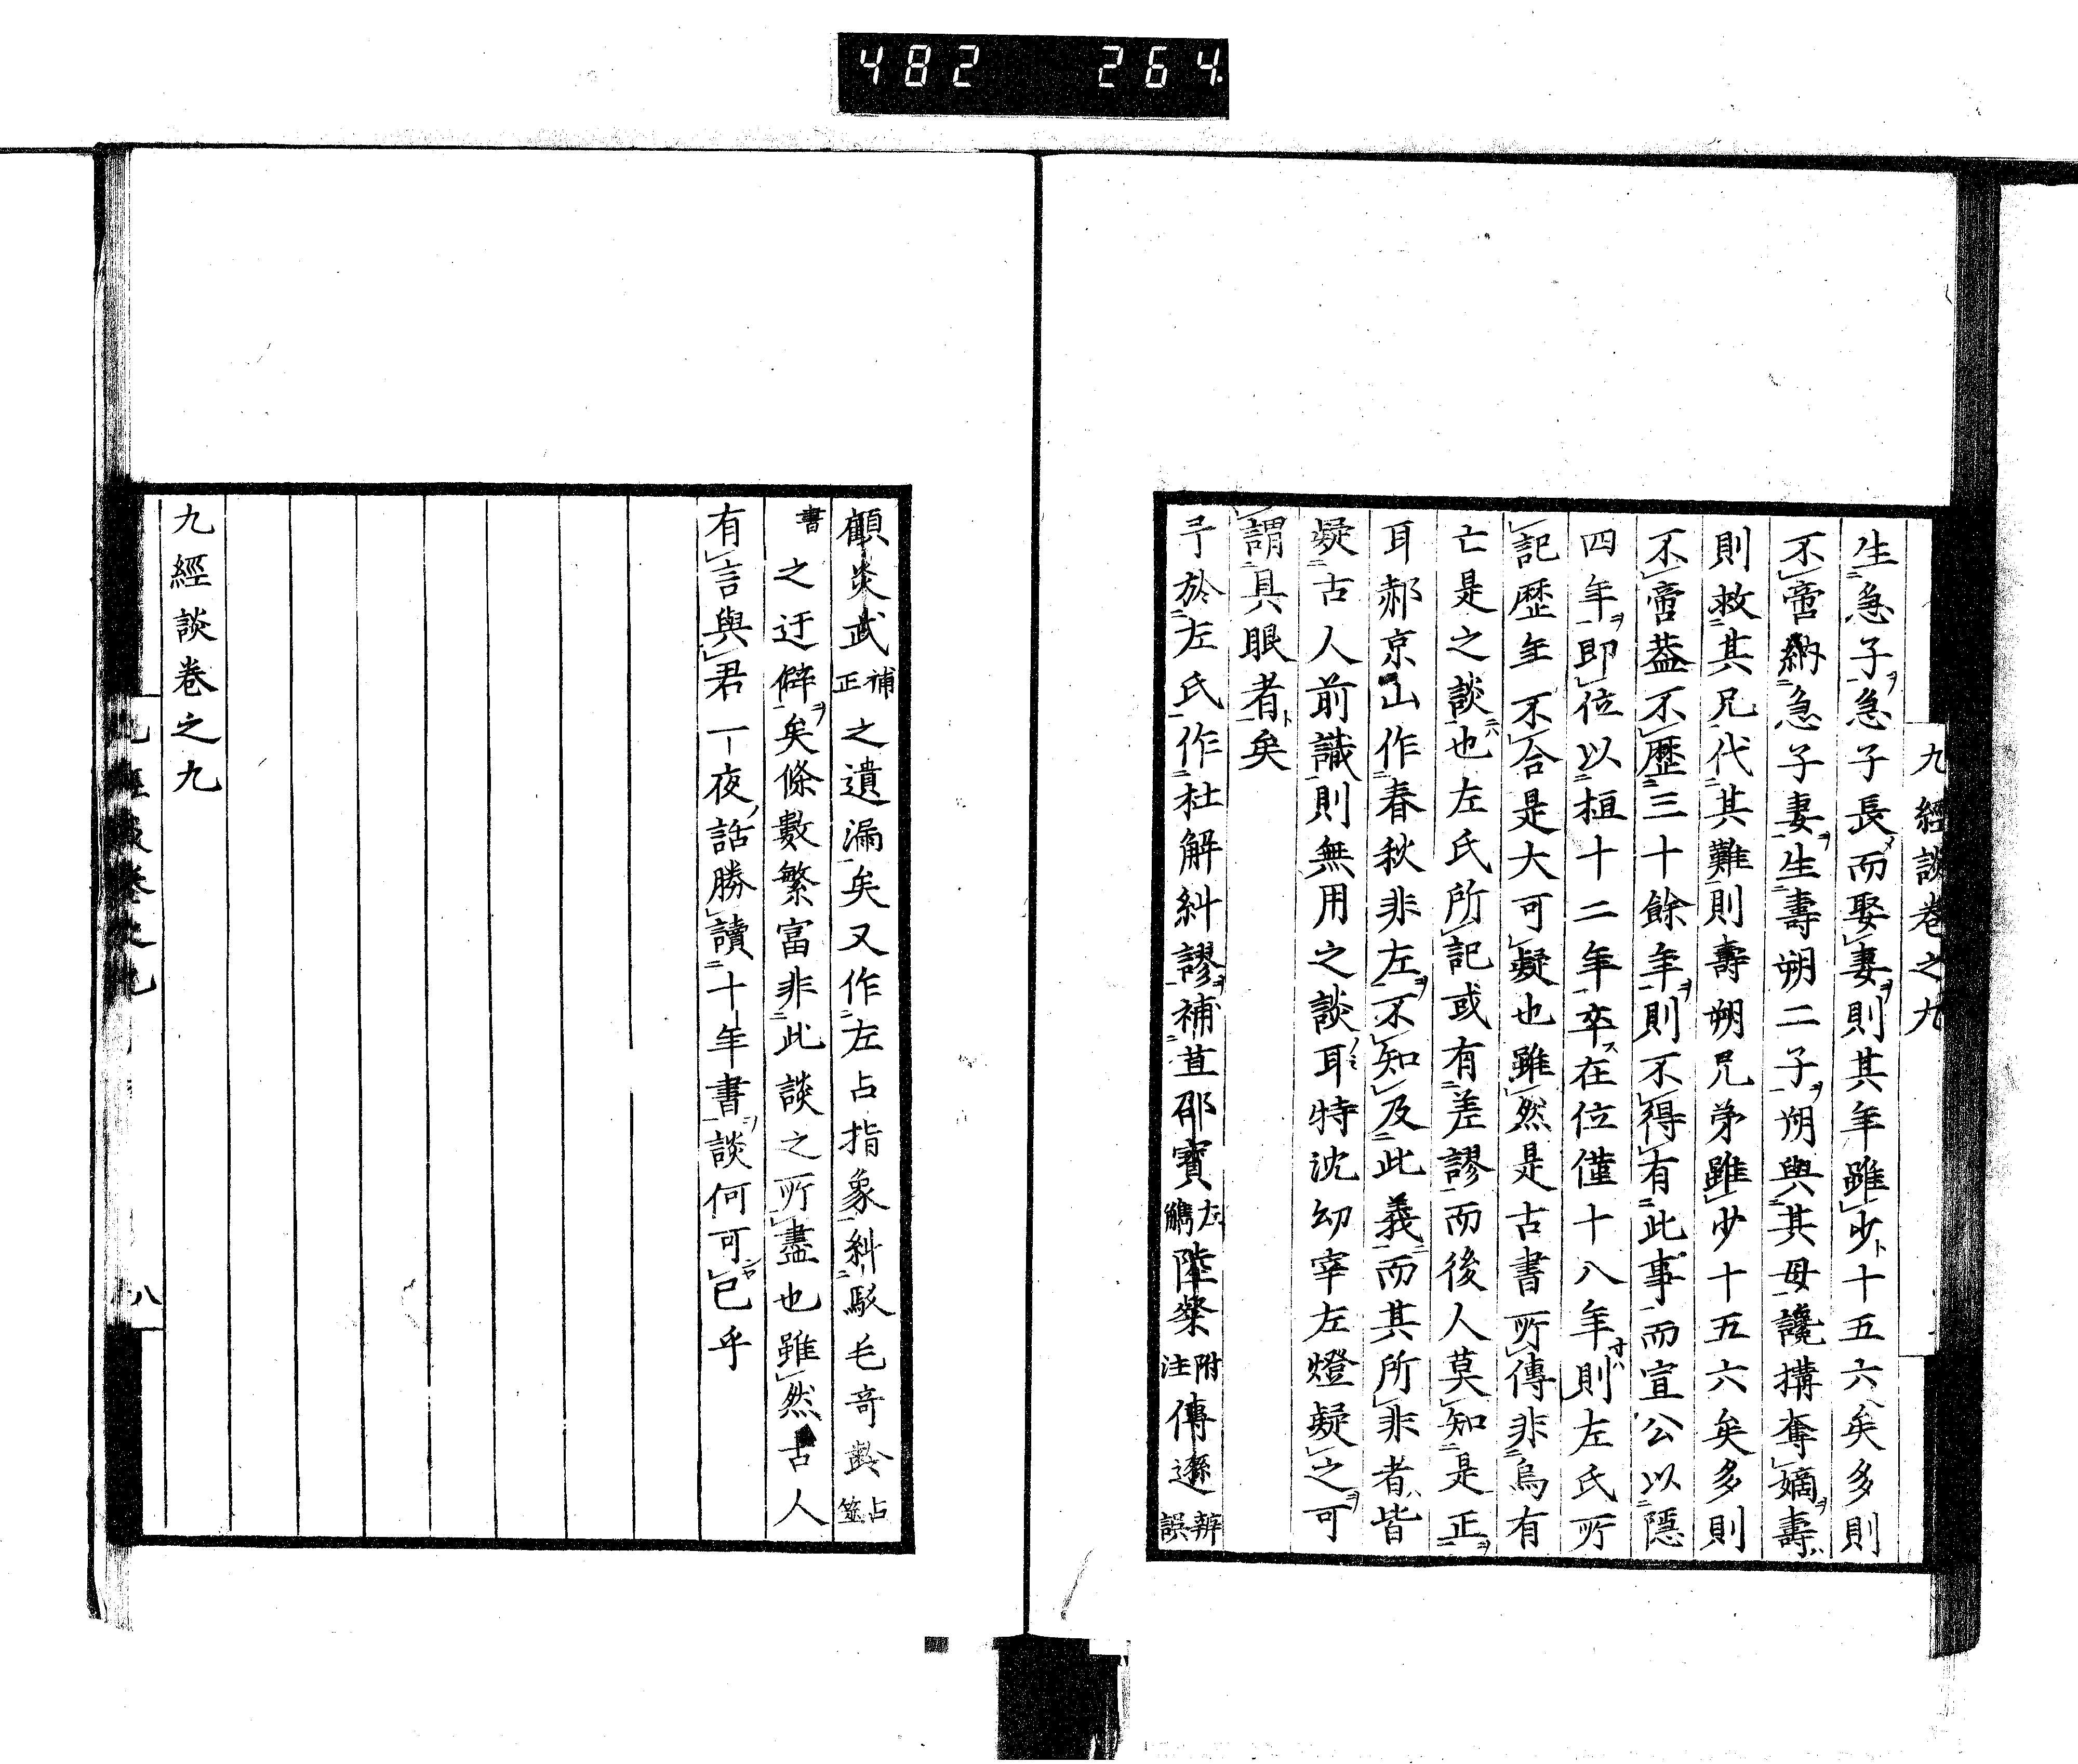 482 264
九經談卷之九
生急子急子長而娶妻則其年雖少十五六矣多則
不啻納急子妻生壽朔二子朔與其母讒搆奪嫡壽
則救其兄代其難則壽朔兄弟雖少十五六矣多則
不啻葢不歷三十餘年則不得有此事而宣公以隱
四年即位以桓十二年卒在位僅十八年則左氏所
記歷年不合是大可疑也雖然是古書所傳非烏有
亡是之談也左氏所記或有差謬而後人莫知是正
耳郝京山作春秋非左不知及此義而其所非者皆
疑古人前識則無用之談耳特沈幼宰左燈疑之可
謂具眼者矣
予於左氏作杜解糾謬補苴邵寶左觿陸粲附注傳遜辨誤
顧炎武補正之遺漏矣又作左占指象糾駁毛奇齡占筮
書之迂僻矣條數繁富非此談之所盡也雖然古人
有言與君一夜話勝讀十年書談何可已乎
九經談卷之九
九經談卷之九
八